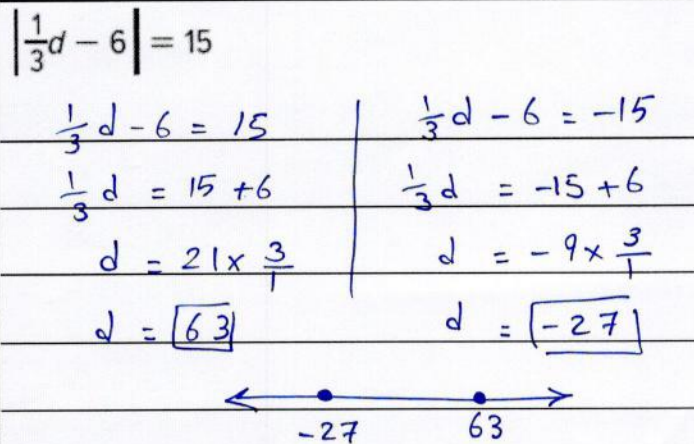 |1/3 d − 6| = 15
1/3 d - 6 = 15
1/3 d = 15 + 6
d = 21 × 3/1
d = 63
1/3 d - 6 = -15
1/3 d = -15 + 6
d = -9 × 3/1
d = -27
-27 63